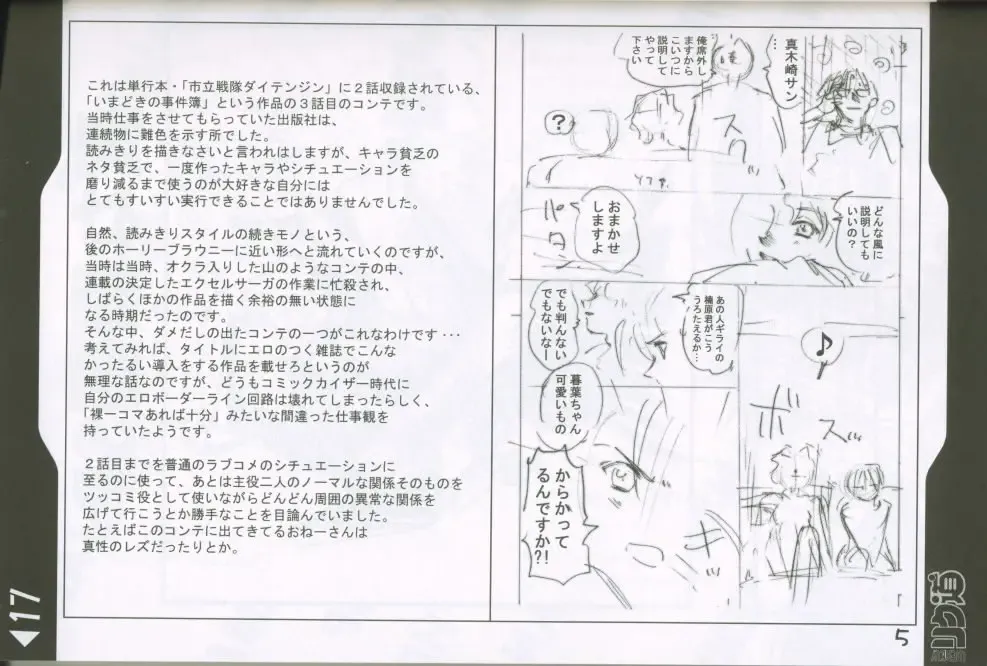 これは単行本・「市立戦隊ダイテンジン」に２話収録されている、
「いまどきの事件簿」という作品の３話目のコンテです。
当時仕事をさせてもらっていた出版社は、
連続物に難色を示す所でした。
読みきりを描きなさいと言われはしますが、キャラ貧乏の
ネタ貧乏で、一度作ったキャラやシチュエーションを
磨り減るまで使うのが大好きな自分には
とてもすいすい実行できることではありませんでした。
自然、読みきりスタイルの続きモノという、
後のホーリーブラウニーに近い形へと流れていくのですが、
当時は当時、オクラ入りした山のようなコンテの中、
連載の決定したエクセルサーガの作業に忙殺され、
しばらくほかの作品を描く余裕の無い状態に
なる時期だったのです。
そんな中、ダメだしの出たコンテの一つがこれなわけです・・・
考えてみれば、タイトルにエロのつく雑誌でこんな
かったるい導入をする作品を載せろというのが
無理な話なのですが、どうもコミックカイザー時代に
自分のエロボーダーライン回路は壊れてしまったらしく、
「裸一コマあれば十分」みたいな間違った仕事観を
持っていたようです。
２話目までを普通のラブコメのシチュエーションに
至るのに使って、あとは主役二人のノーマルな関係そのものを
ツッコミ役として使いながらどんどん周囲の異常な関係を
広げて行こうとか勝手なことを目論んでいました。
たとえばこのコンテに出てきてるおねーさんは
真性のレズだったりとか。
真木崎サン
…
俺席外し
ますから
こいつに
説明して
やって
下さい
スッ
?
どんな風に
説明しても
いいの？
おまかせ
しますよ
あの人ギライの
楠原君がこう
うろたえるか…
でも判んない
でもないなー
暮葉ちゃん
可愛いもの
からかって
るんですか?!
♪
ボスッ
5
17